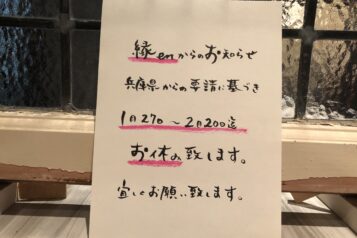 縁enからのお知らせ
兵庫県からの要請に基づき
1月27日〜2月20日迄
お休み致します。
宜しくお願い致します。